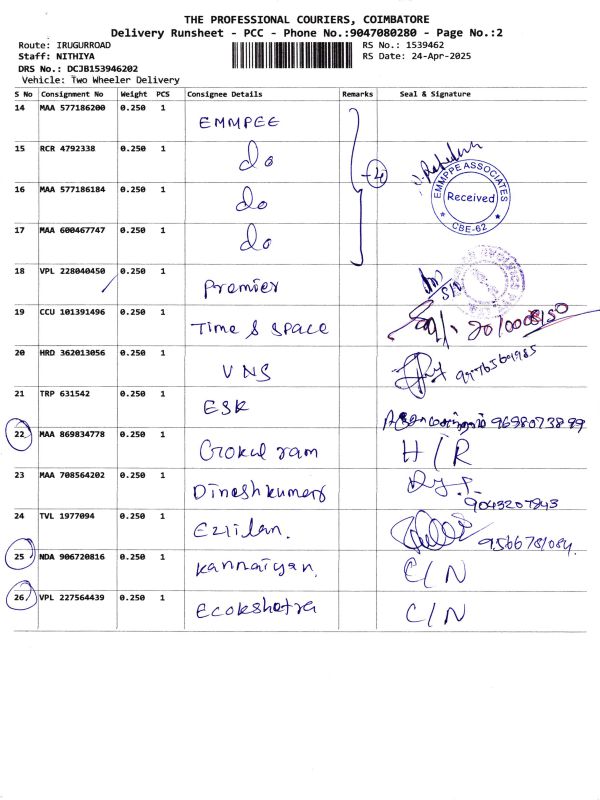 THE PROFESSIONAL COURIERS, COIMBATORE
Delivery Runsheet - PCC - Phone No.:9047080280 - Page No.:2
Route: IRUGURROAD RS No.: 1539462
Staff: NITHIYA RS Date: 24-Apr-2025
DRS No.: DCJB153946202
Vehicle: Two Wheeler Delivery
S No Consignment No Weight PCS Consignee Details Remarks Seal & Signature
14 MAA 577186200 0.250 1 EMMPEE
15 RCR 4792338 0.250 1 do
16 MAA 577186184 0.250 1 do
EMMPPE ASSOCIATES
Received
CBE-62
17 MAA 600467747 0.250 1 do
18 VPL 228040450 0.250 1 Premier
19 CCU 101391496 0.250 1 Time & space
20 HRD 362013056 0.250 1 VNS
21 TRP 631542 0.250 1 ESK 9698073899
22 MAA 869834778 0.250 1 Gokul ram H/R
23 MAA 708564202 0.250 1 Dineshkumar 9043207843
24 TVL 1977094 0.250 1 Ezhilan. 9566781084.
25 NDA 906720816 0.250 1 Kannaiyan. C/N
26 VPL 227564439 0.250 1 Ecokshetra C/N